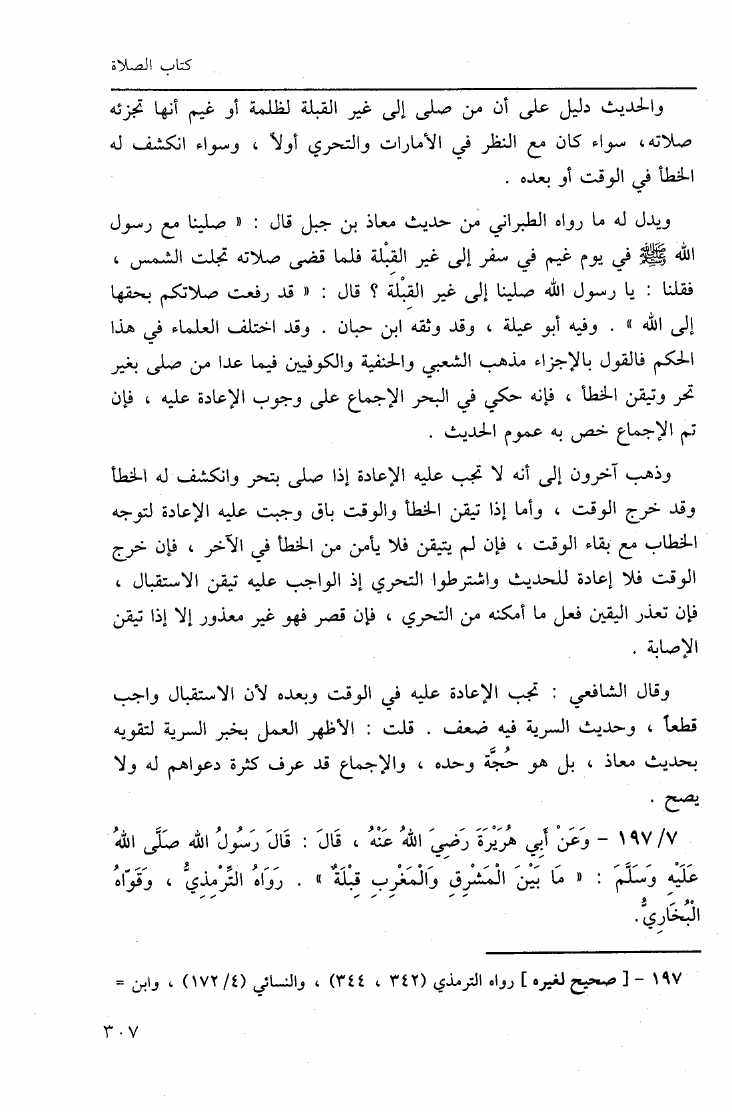 كتاب الصلاة
والحديث دليل على أن من صلى إلى غير القبلة لظلمة أو غيم أنها تجزئه
صلاته، سواء كان مع النظر في الأمارات والتحري أولاً ، وسواء انكشف له
الخطأ في الوقت أو بعده .
ويدل له ما رواه الطبراني من حديث معاذ بن جبل قال : « صلينا مع رسول
الله ﷺ في يوم غيم في سفر إلى غير القبْلة فلما قضى صلاته تجلت الشمس ،
فقلنا : يا رسول الله صلينا إلى غير القِبْلَة ؟ قال : « قد رفعت صلاتكم بحقها
إلى الله » . وفيه أبو عيلة ، وقد وثقه ابن حبان . وقد اختلف العلماء في هذا
الحكم فالقول بالإجزاء مذهب الشعبي والحنفية والكوفيين فيما عدا من صلى بغير
تحر وتيقن الخطأ ، فإنه حكي في البحر الإجماع على وجوب الإعادة عليه ، فإن
تم الإجماع خص به عموم الحديث .
وذهب آخرون إلى أنه لا تجب عليه الإعادة إذا صلى بتحر وانكشف له الخطأ
وقد خرج الوقت ، وأما إذا تيقن الخطأ والوقت باق وجبت عليه الإعادة لتوجه
الخطاب مع بقاء الوقت ، فإن لم يتيقن فلا يأمن من الخطأ في الآخر ، فإن خرج
الوقت فلا إعادة للحديث واشترطوا التحري إذ الواجب عليه تيقن الاستقبال ،
فإن تعذر اليقين فعل ما أمكنه من التحري ، فإن قصر فهو غير معذور إلا إذا تيقن
الإصابة .
وقال الشافعي : تجب الإعادة عليه في الوقت وبعده لأن الاستقبال واجب
قطعاً ، وحديث السرية فيه ضعف . قلت : الأظهر العمل بخبر السرية لتقويه
بحديث معاذ ، بل هو حُجَّة وحده ، والإجماع قد عرف كثرة دعواهم له ولا
يصح .
١٩٧/٧ - وَعَنْ أَبِي هُرَيْرَةَ رَضِيَ اللهُ عَنْهُ ، قَالَ : قَالَ رَسُولُ الله صَلَّى اللهُ
عَلَيْهِ وَسَلَّمَ : « مَا بَيْنَ الْمَشْرِقِ وَالْمَغْرِبِ قِبْلَةٌ » . رَوَاهُ التِّرْمِذِيُّ ، وَقَوَّاهُ
الْبُخَارِيُّ.
١٩٧ - [ صحيح لغيره ] رواه الترمذي (٣٤٢ ، ٣٤٤) ، والنسائي (١٧٢/٤) ، وابن =
٣٠٧